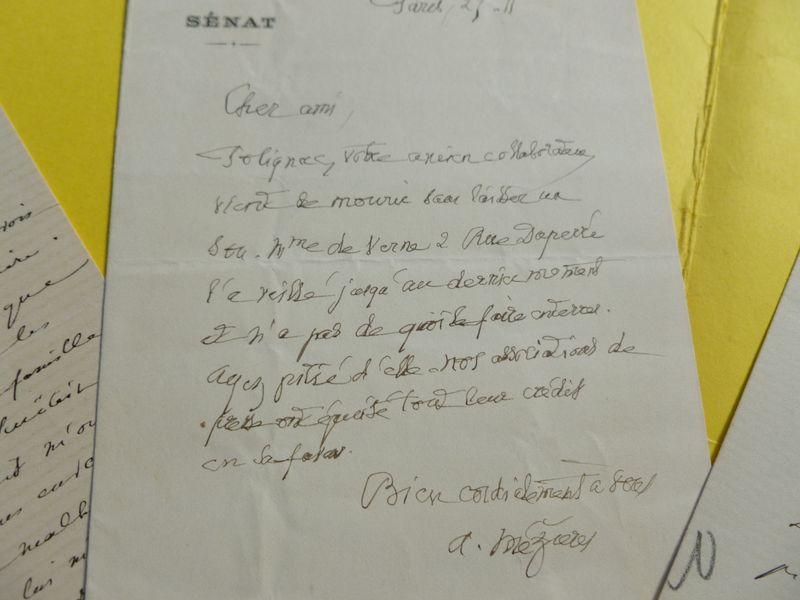 SÉNAT
Paris, 27. 11
Cher ami,
Polignac, votre ancien collaborateur,
vient de mourir sans laisser un
sou. Mme de Verne 2 Rue Duperré
l'a veillé jusqu'au dernier moment
et n'a pas de quoi le faire enterrer.
Ayez pitié d'elle. Nos associations de
presse ont épuisé tout leur crédit
en sa faveur.
Bien cordialement à vous
A. Mézières
que
les
famille